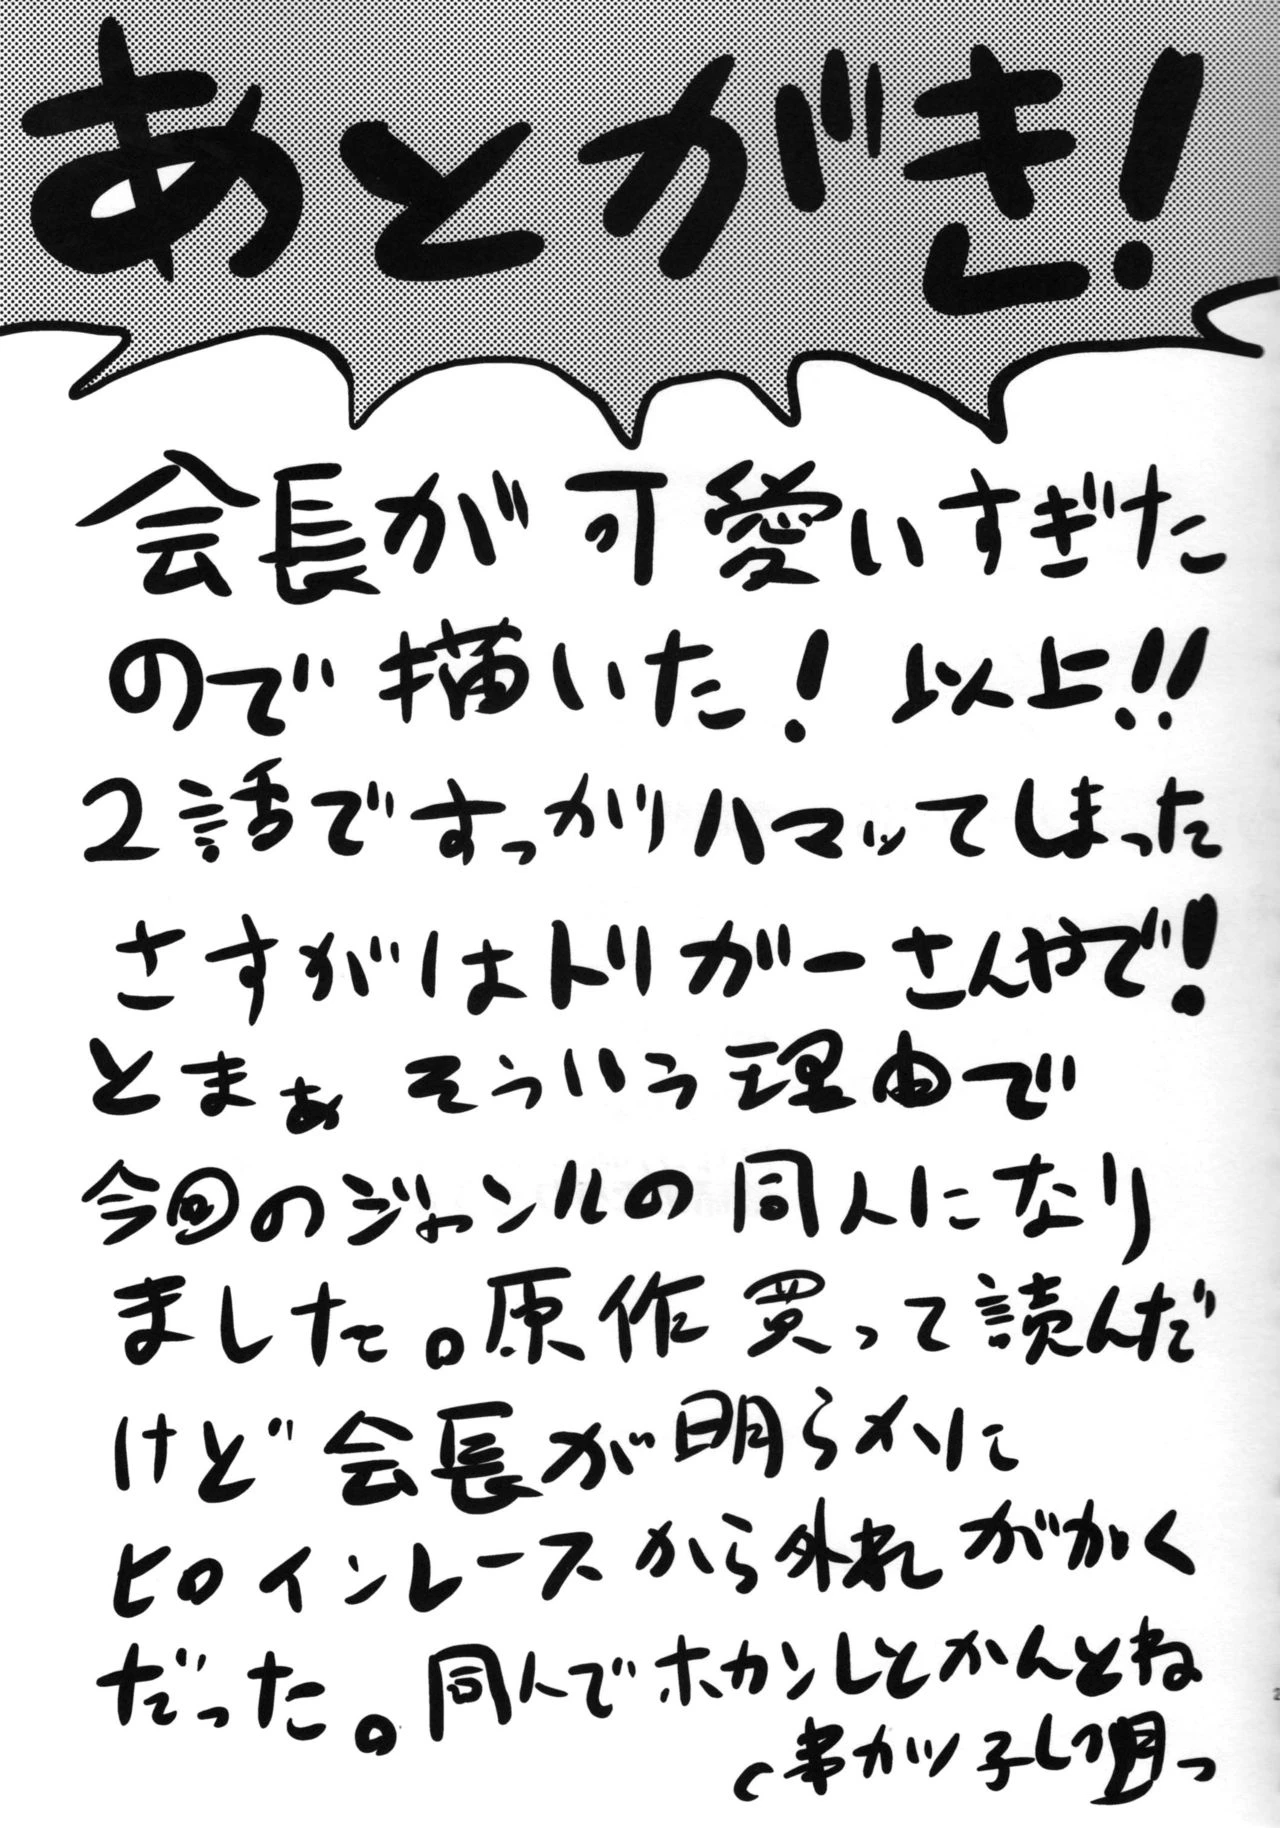 あとがき!
会長が可愛いすぎた
ので描いた!以上!!
2話ですっかりハマッてしまった
さすがはトリガーさんやで!
とまぁ そういう理由で
今回のジャンルの同人になり
ました。原作買って読んだ
けど会長が明らかに
ヒロインレースから外れがかく
だった。同人でホカンしとかんとね
(串カツ子しつ